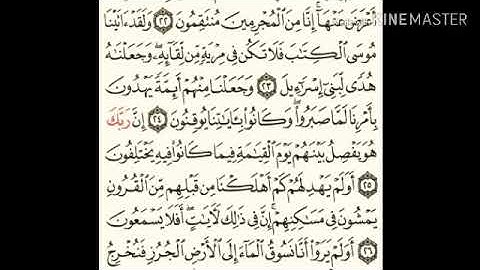 أَعْرَضَ عَنْهَآ ۚ إِنَّا مِنَ ٱلْمُجْرِمِينَ مُنتَقِمُونَ ٢٢ وَلَقَدْ ءَاتَيْنَا
مُوسَى ٱلْكِتَٰبَ فَلَا تَكُن فِى مِرْيَةٍ مِّن لِّقَآئِهِۦ ۖ وَجَعَلْنَٰهُ
هُدًى لِّبَنِىٓ إِسْرَٰٓءِيلَ ٢٣ وَجَعَلْنَا مِنْهُمْ أَئِمَّةً يَهْدُونَ
بِأَمْرِنَا لَمَّا صَبَرُوا۟ ۖ وَكَانُوا۟ بِـَٔايَٰتِنَا يُوقِنُونَ ٢٤ إِنَّ رَبَّكَ
هُوَ يَفْصِلُ بَيْنَهُمْ يَوْمَ ٱلْقِيَٰمَةِ فِيمَا كَانُوا۟ فِيهِ يَخْتَلِفُونَ
٢٥ أَوَلَمْ يَهْدِ لَهُمْ كَمْ أَهْلَكْنَا مِن قَبْلِهِم مِّنَ ٱلْقُرُونِ
يَمْشُونَ فِى مَسَٰكِنِهِمْ ۚ إِنَّ فِى ذَٰلِكَ لَءَايَٰتٍ ۖ أَفَلَا يَسْمَعُونَ
٢٦ أَوَلَمْ يَرَوْا۟ أَنَّا نَسُوقُ ٱلْمَآءَ إِلَى ٱلْأَرْضِ ٱلْجُرُزِ فَنُخْرِجُ
KINEMASTER